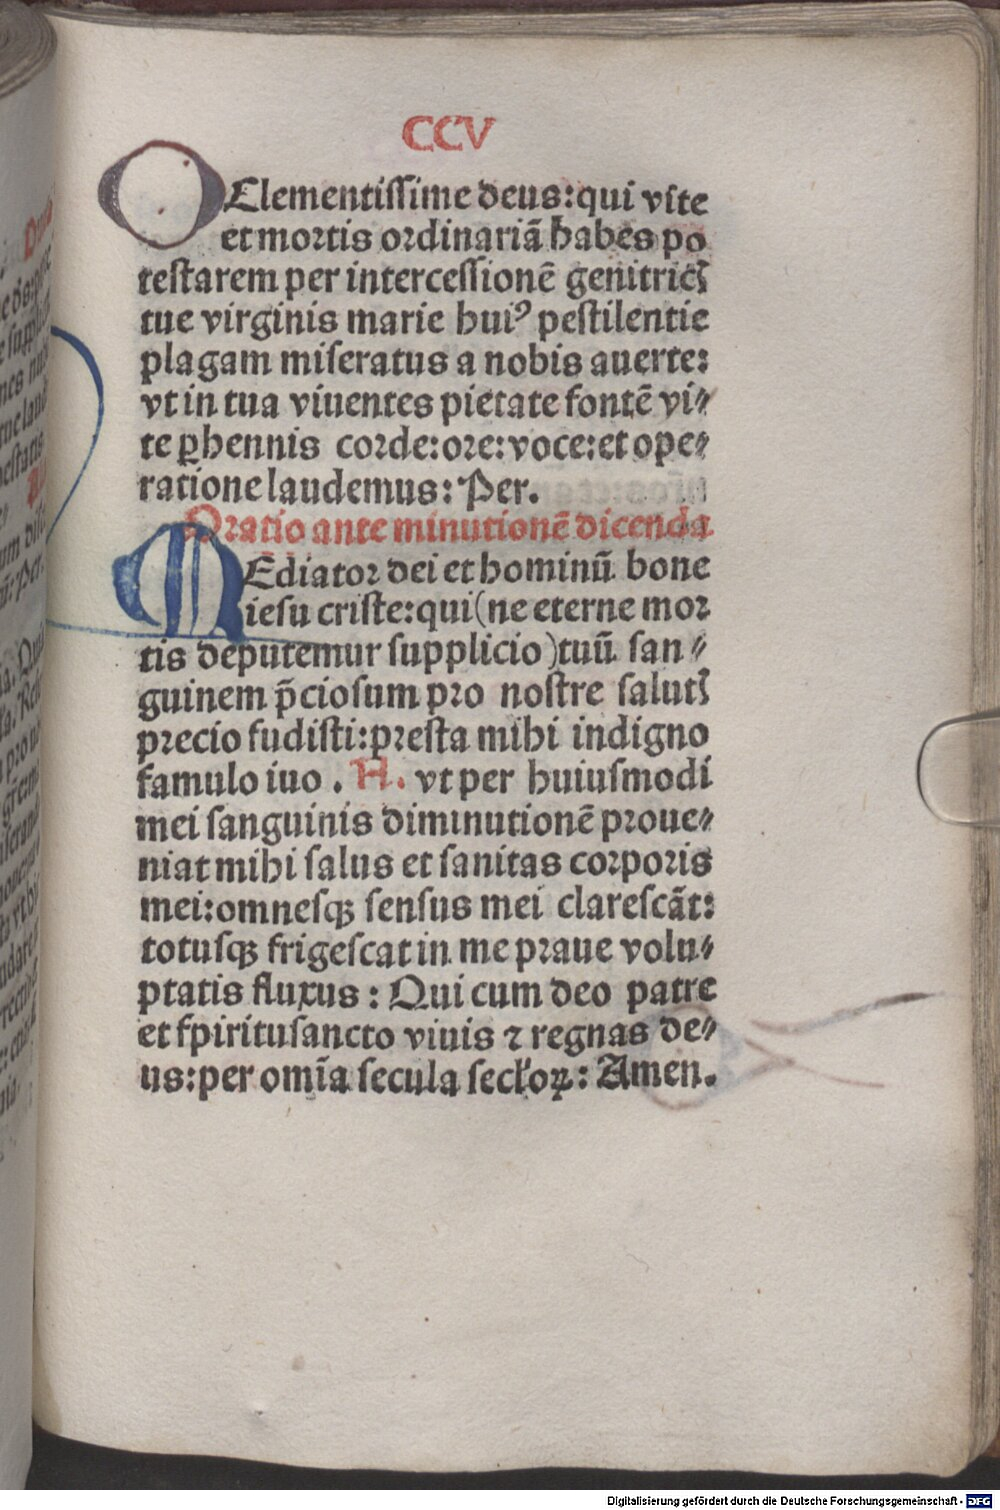 CCV
O Clementissime deus: qui vite
et mortis ordinariā habes po
testatem per intercessionē genitricꝭ
tue virginis marie huiꝰ pestilentie
plagam miseratus a nobis auerte:
vt in tua viuentes pietate fontē vi⸗
te ꝑhennis corde: ore: voce: et ope⸗
ratione laudemus: Per.
Oratio ante minutionē dicenda
MEdiator dei et hominū bone
iesu criste: qui (ne eterne mor
tis deputemur supplicio) tuū san⸗
guinem p̄ciosum pro nostre salutꝭ
precio fudisti: presta mihi indigno
famulo tuo. N. vt per huiusmodi
mei sanguinis diminutionē proue⸗
niat mihi salus et sanitas corporis
mei: omnesqꝫ sensus mei clarescāt:
totusqꝫ frigescat in me praue volu⸗
ptatis fluxus: Qui cum deo patre
et spiritusancto viuis ⁊ regnas de⸗
us: per omīa secula secl'oꝝ: Amen.
Digitalisierung gefördert durch die Deutsche Forschungsgemeinschaft - DFG